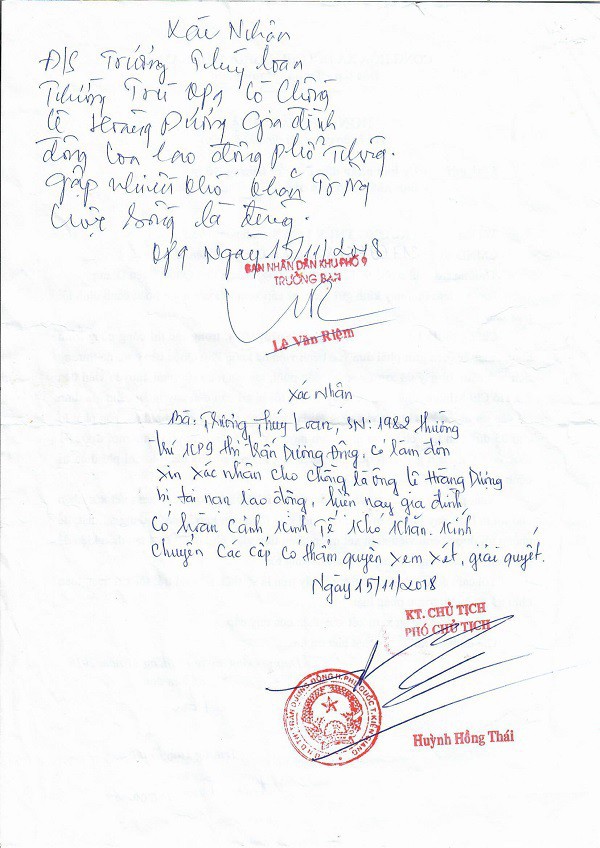 Xác Nhận
Đ/S Trương Thúy Loan
Thường Trú KP9 Có Chồng
Lê Hoàng Dương Gia đình
đông con lao động phổ Thông.
gặp nhiều khó khăn Trong
cuộc sống là đúng.
KP9 Ngày 15/11/2018
BAN NHÂN DÂN KHU PHỐ 9
TRƯỞNG BAN
Lê Văn Riệm
Xác Nhận
Bà: Trương Thúy Loan, SN: 1982 thường
trú KP9 thị trấn Dương Đông, có làm đơn
xin xác nhận cho chồng là ông Lê Hoàng Dương
bị tai nạn lao động, hiện nay gia đình
có hoàn cảnh kinh Tế khó khăn. Kính
chuyển các cấp có thẩm quyền xem xét, giải quyết.
Ngày 15/11/2018
KT. CHỦ TỊCH
PHÓ CHỦ TỊCH
U.B.N.D THỊ TRẤN DƯƠNG ĐÔNG H.PHÚ QUỐC T.KIÊN GIANG
Huỳnh Hồng Thái